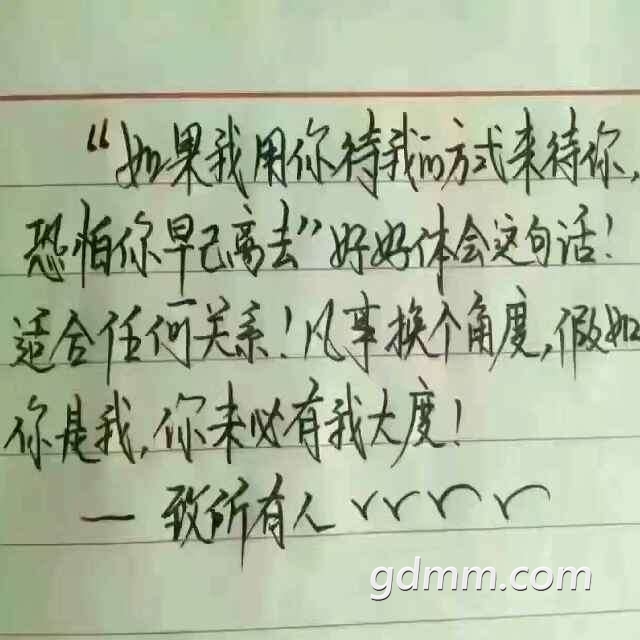 “如果我用你待我的方式来待你,
恐怕你早已离去”好好体会这句话!
适合任何关系!凡事换个角度,假如
你是我,你未必有我大度!
— 致所有人
gdmm.com